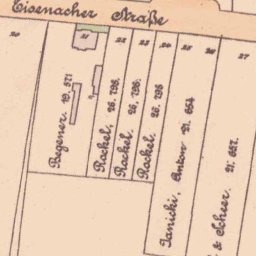 Eisenacher Straße
20
21
22
23
24
25
26
27
Regener. 19. 571
Rackel. 26. 796.
Rackel. 26. 796.
Rackel. 26. 796
Janicki, Anton 21. 654
& Scheer. 21. 657.